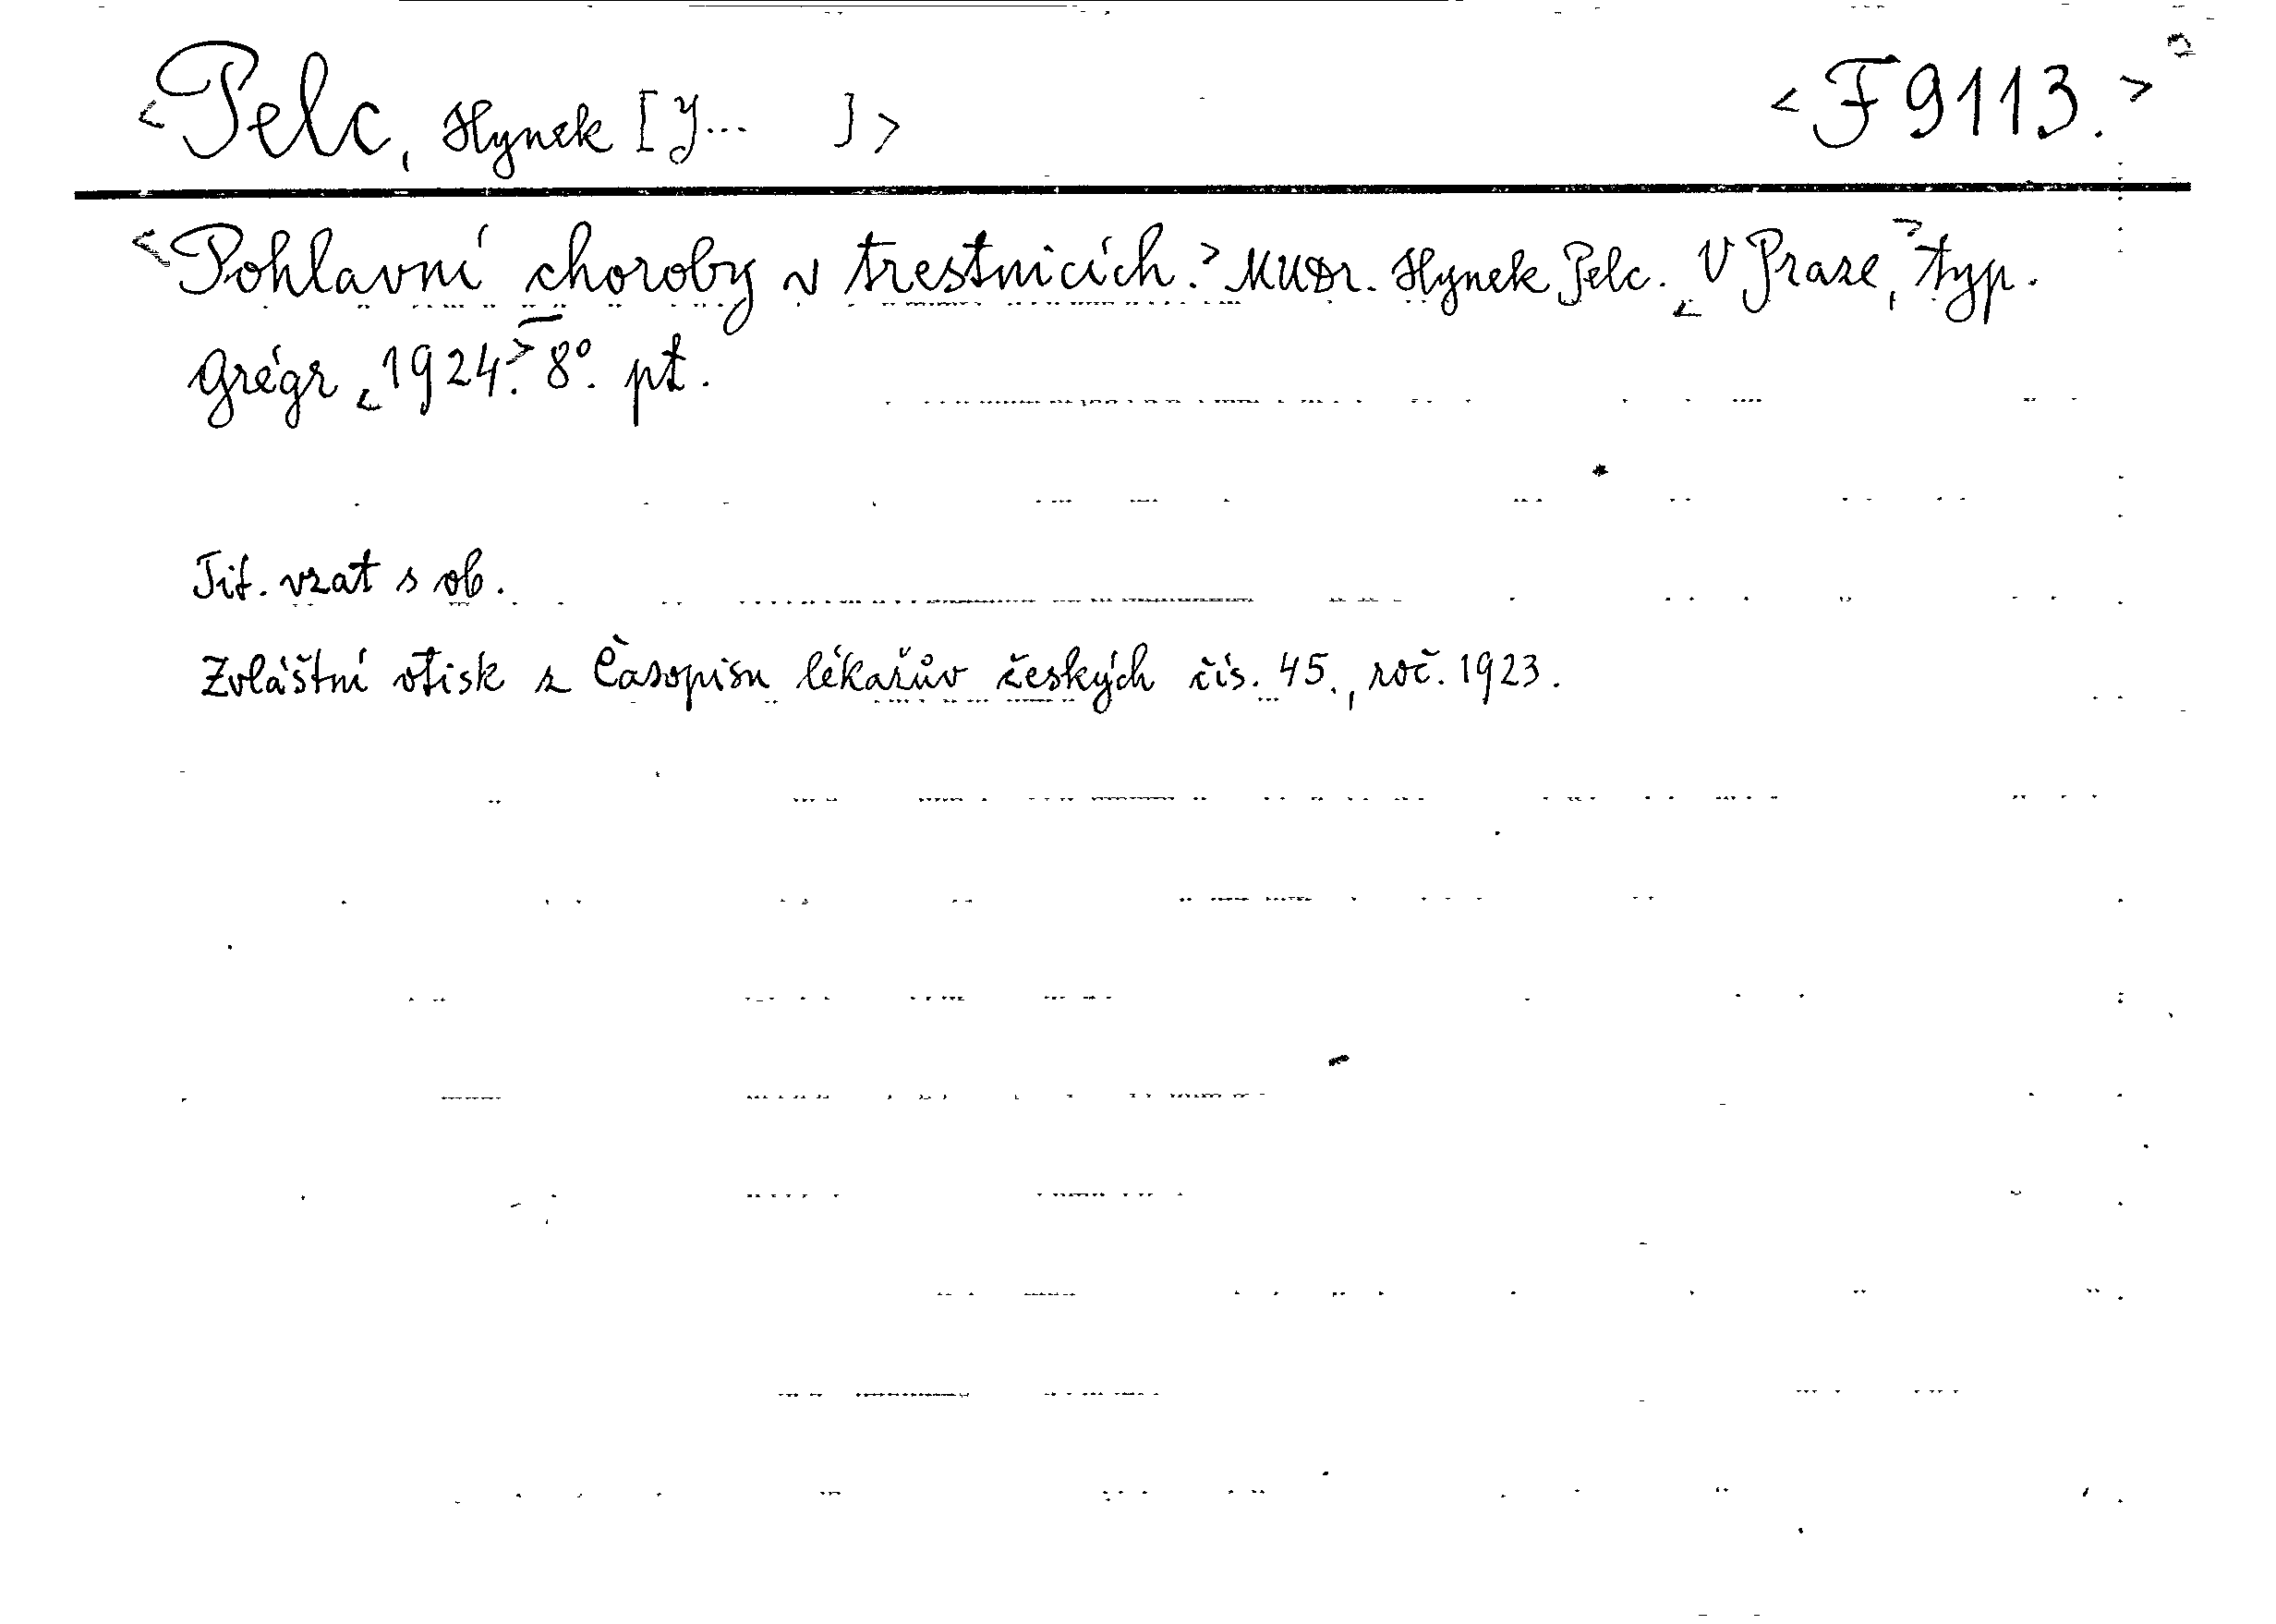 <Pelc, Hynek [J... ]> <F 9113.>
<Pohlavní choroby v trestnicích.> MUDr. Hynek Pelc. <V Praze,> typ.
Grégr <1924.> 8°. pt.
Tit. vzat s ob.
Zvláštní otisk z Časopisu lékařův českých čís. 45., roč. 1923.